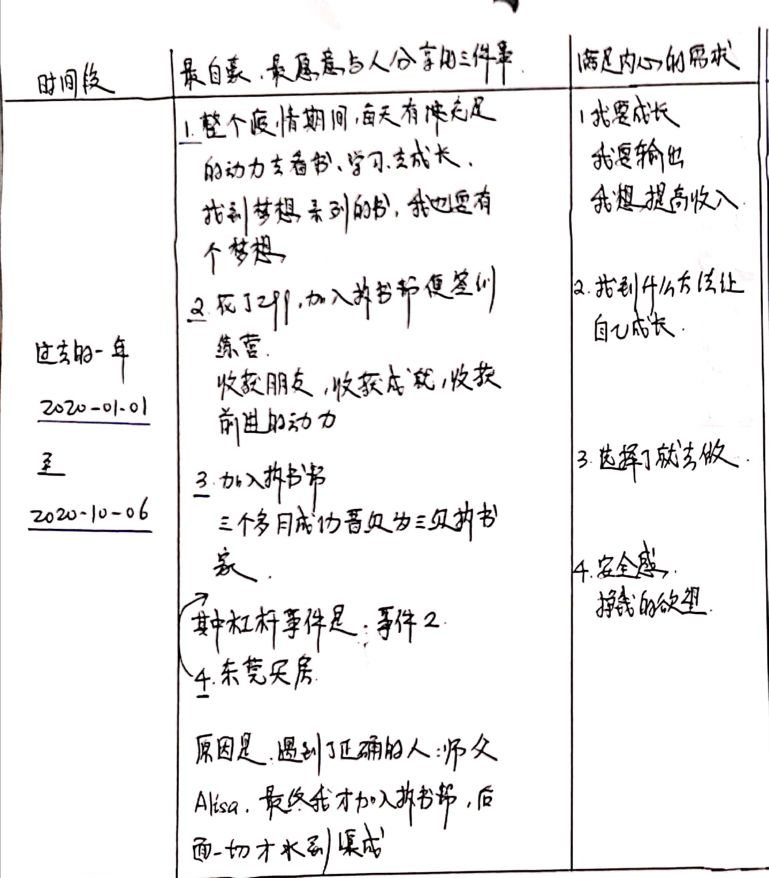 时间段
最自豪、最愿意与人分享的三件事
满足内心的需求
过去的一年
2020-01-01
至
2020-10-06
1.整个疫情期间,每天有使充足
的动力去看书、学习、去成长、
找到梦想系列的书,我也要有
个梦想
2.花了299,加入拆书帮便签训
练营.
收获朋友,收获成就,收获
前进的动力
3.加入拆书帮
三个多月成功晋级为三级拆书
家.
其中杠杆事件是:事件2
4.东莞买房
原因是.遇到了正确的人:师父
Alisa.最终我才加入拆书帮,后
面一切才水到渠成
1我要成长
我要输出
我想提高收入
2.找到什么方法让
自己成长.
3.选择了就去做.
4.安全感.
挣钱的欲望.